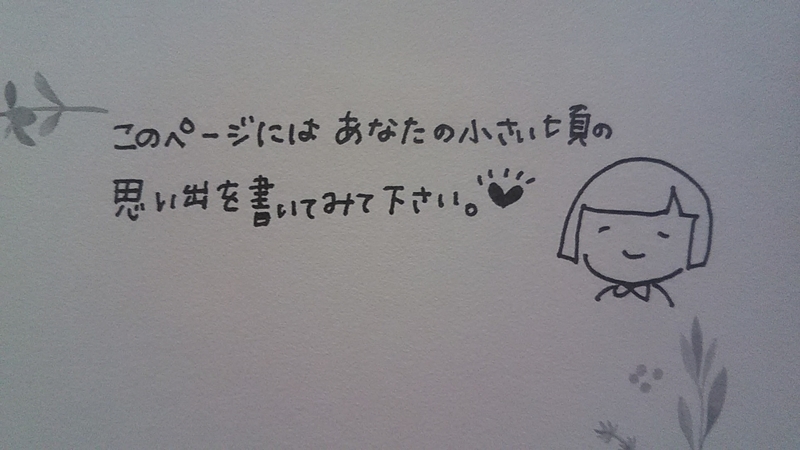 このページには あなたの小さい頃の
思い出を書いてみて下さい。